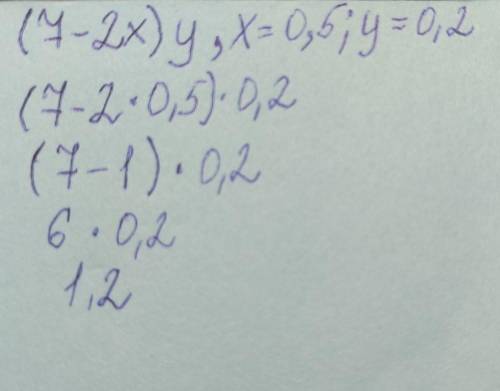 (7-2x)y, x=0,5; y=0,2
(7-2·0,5)·0,2
(7-1)·0,2
6·0,2
1,2